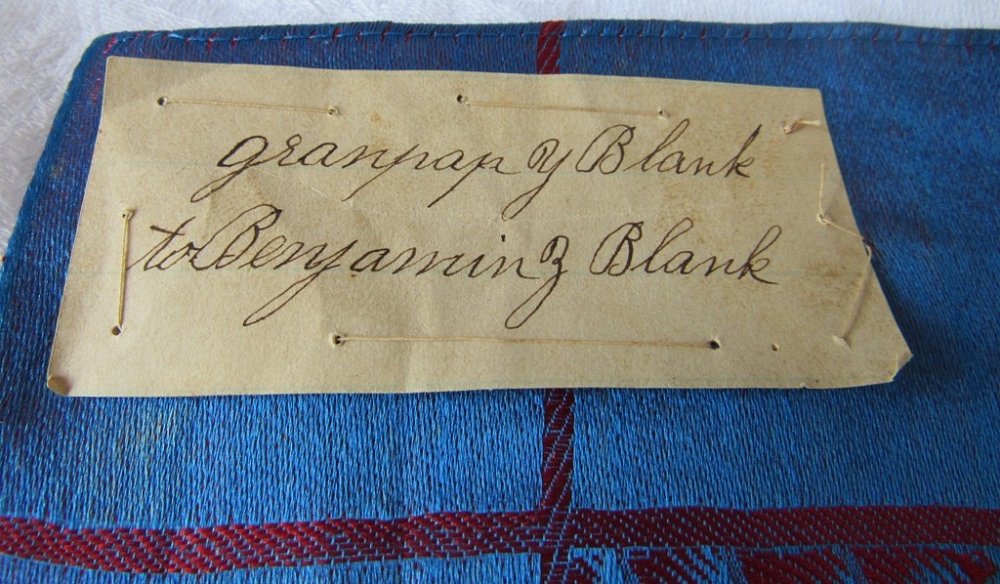 granpapy Blank
to Benjamin Z Blank